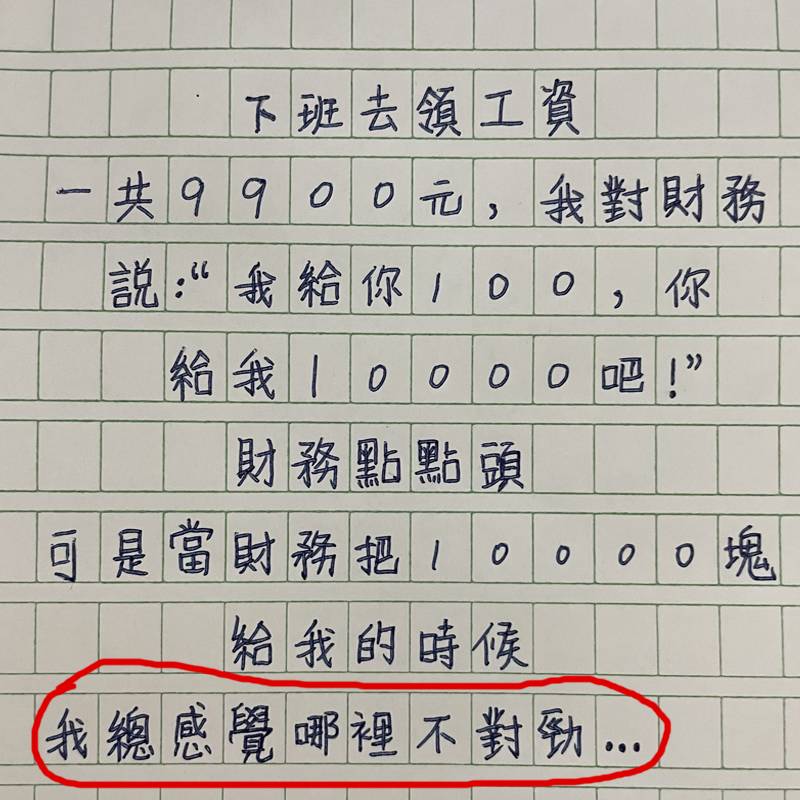 下班去領工資
一共9900元,我對財務
説:“我給你100,你
給我10000吧!”
財務點點頭
可是當財務把10000塊
給我的時候
我總感覺哪裡不對勁...